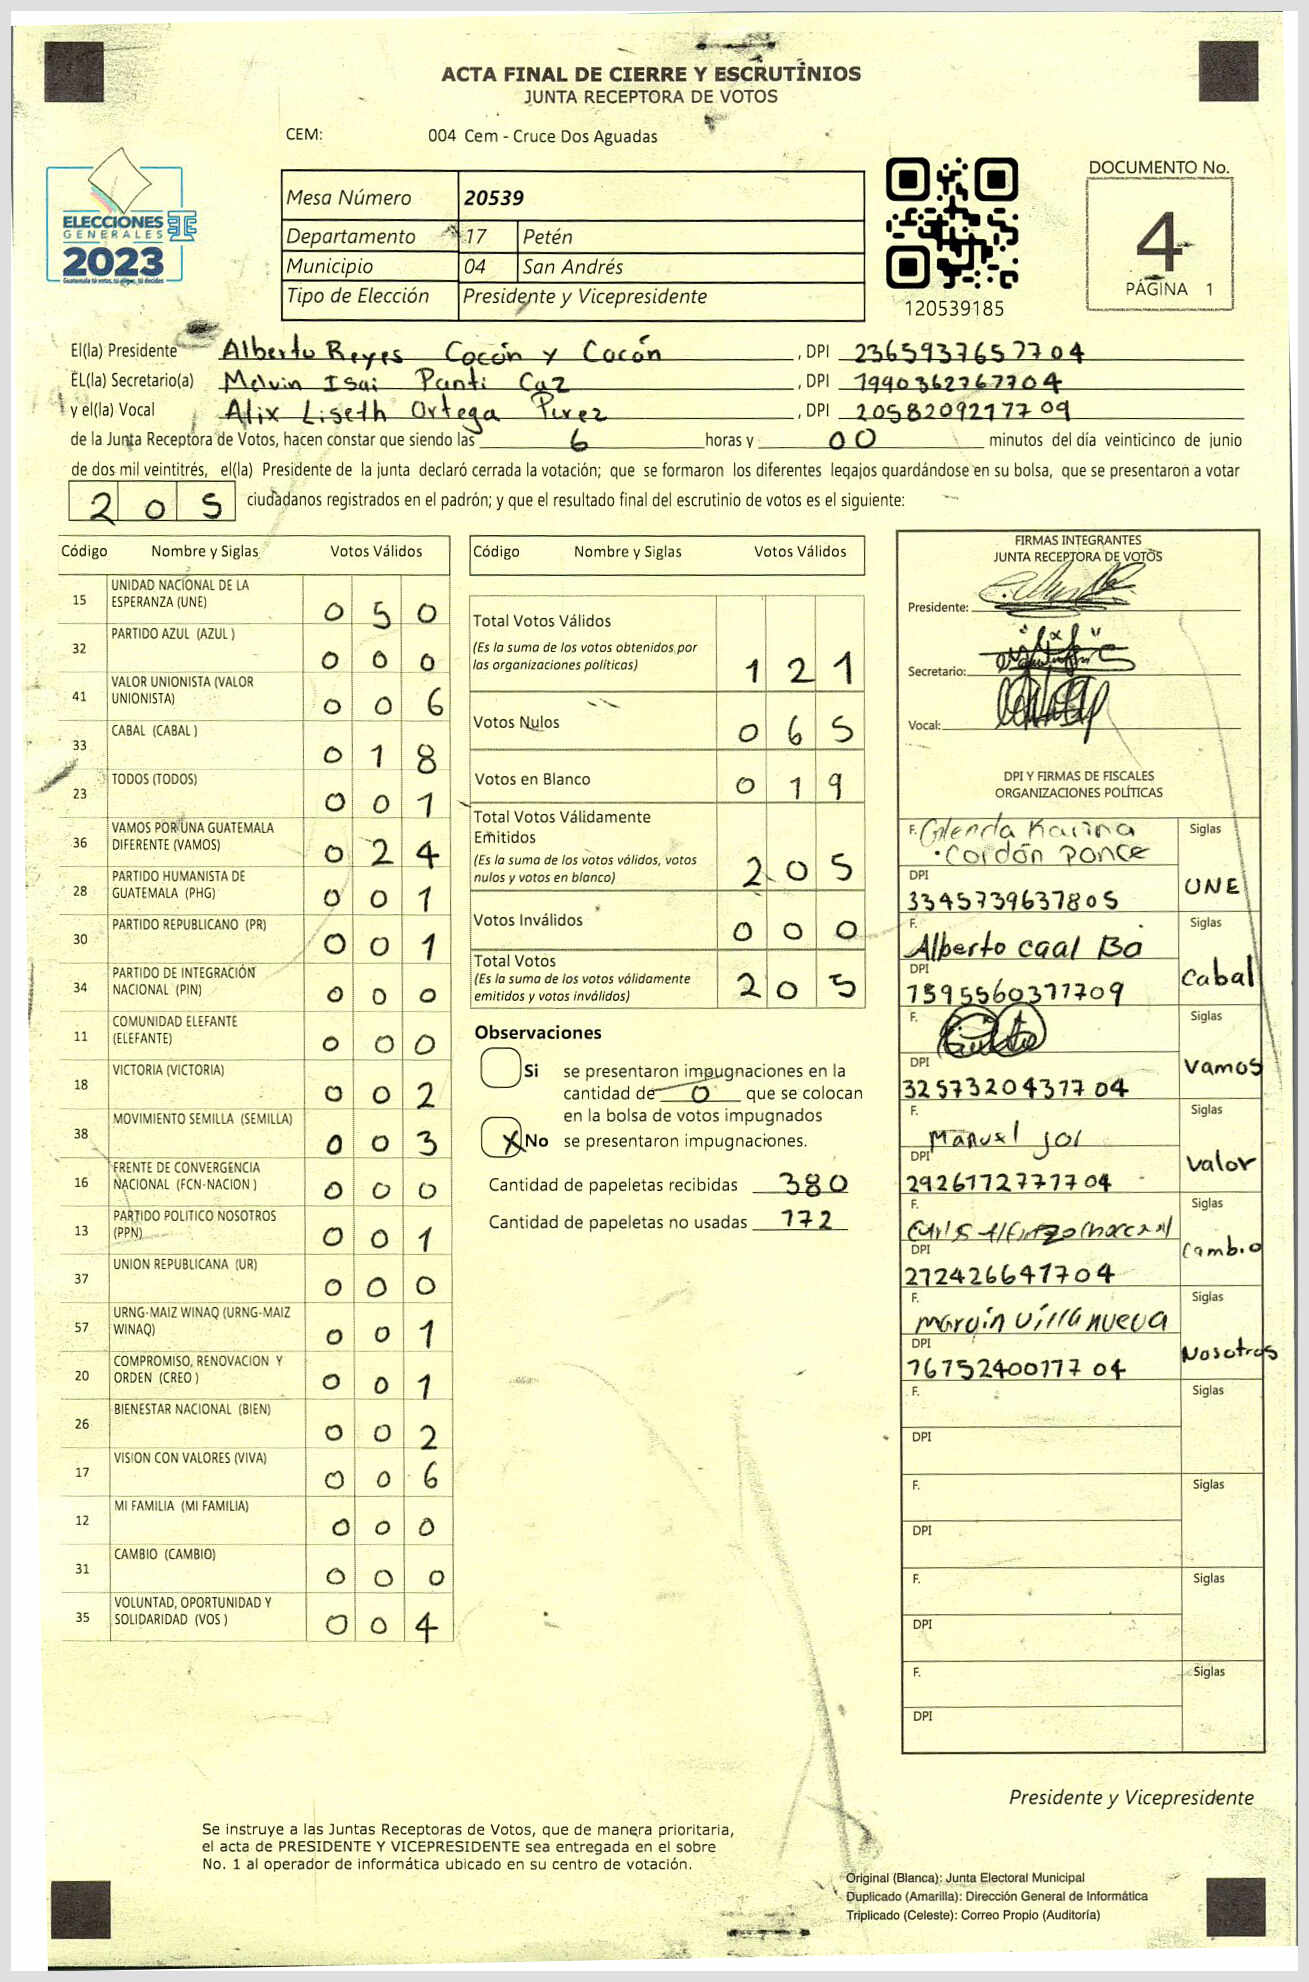 ACTA FINAL DE CIERRE Y ESCRUTÍNIOS
JUNTA RECEPTORA DE VOTOS
CEM: 004 Cem - Cruce Dos Aguadas
ELECCIONES
GENERALES
2023
Guatemala tú votas, tú eliges, tú decides
Mesa Número 20539
Departamento 17 Petén
Municipio 04 San Andrés
Tipo de Elección Presidente y Vicepresidente
120539185
DOCUMENTO No.
4
PÁGINA 1
El(la) Presidente Alberto Reyes Cocón y Cocón , DPI 2365937657704
EL(la) Secretario(a) Melvin Isai Panti Caz , DPI 1990362767704
y el(la) Vocal Alix Liseth Ortega Perez , DPI 2058209217709
de la Junta Receptora de Votos, hacen constar que siendo las 6 horas y 00 minutos del día veinticinco de junio
de dos mil veintitrés, el(la) Presidente de la junta declaró cerrada la votación; que se formaron los diferentes legajos quardándose en su bolsa, que se presentaron a votar
205 ciudadanos registrados en el padrón; y que el resultado final del escrutinio de votos es el siguiente:
Código Nombre y Siglas Votos Válidos
15 UNIDAD NACIONAL DE LA ESPERANZA (UNE) 0 5 0
32 PARTIDO AZUL (AZUL ) 0 0 0
41 VALOR UNIONISTA (VALOR UNIONISTA) 0 0 6
33 CABAL (CABAL ) 0 1 8
23 TODOS (TODOS) 0 0 1
36 VAMOS POR UNA GUATEMALA DIFERENTE (VAMOS) 0 2 4
28 PARTIDO HUMANISTA DE GUATEMALA (PHG) 0 0 1
30 PARTIDO REPUBLICANO (PR) 0 0 1
34 PARTIDO DE INTEGRACIÓN NACIONAL (PIN) 0 0 0
11 COMUNIDAD ELEFANTE (ELEFANTE) 0 0 0
18 VICTORIA (VICTORIA) 0 0 2
38 MOVIMIENTO SEMILLA (SEMILLA) 0 0 3
16 FRENTE DE CONVERGENCIA NACIONAL (FCN-NACION ) 0 0 0
13 PARTIDO POLITICO NOSOTROS (PPN) 0 0 1
37 UNION REPUBLICANA (UR) 0 0 0
57 URNG-MAIZ WINAQ (URNG-MAIZ WINAQ) 0 0 1
20 COMPROMISO, RENOVACION Y ORDEN (CREO ) 0 0 1
26 BIENESTAR NACIONAL (BIEN) 0 0 2
17 VISION CON VALORES (VIVA) 0 0 6
12 MI FAMILIA (MI FAMILIA) 0 0 0
31 CAMBIO (CAMBIO) 0 0 0
35 VOLUNTAD, OPORTUNIDAD Y SOLIDARIDAD (VOS ) 0 0 4
Código Nombre y Siglas Votos Válidos
Total Votos Válidos
(Es la suma de los votos obtenidos por
las organizaciones políticas) 1 2 1
Votos Nulos 0 6 5
Votos en Blanco 0 1 9
Total Votos Válidamente
Emitidos
(Es la suma de los votos válidos, votos
nulos y votos en blanco) 2 0 5
Votos Inválidos 0 0 0
Total Votos
(Es la suma de los votos válidamente
emitidos y votos inválidos) 2 0 5
Observaciones
Si se presentaron impugnaciones en la
cantidad de 0 que se colocan
en la bolsa de votos impugnados
X No se presentaron impugnaciones.
Cantidad de papeletas recibidas 380
Cantidad de papeletas no usadas 172
FIRMAS INTEGRANTES
JUNTA RECEPTORA DE VOTOS
Presidente:
Secretario:
Vocal:
DPI Y FIRMAS DE FISCALES
ORGANIZACIONES POLÍTICAS
F. Glenda Karina Siglas
Cordón Ponce
DPI UNE
3345739637805
F. Siglas
Alberto caal Bo
DPI Cabal
1595560377709
F. Siglas
DPI Vamos
3257320437704
F. Siglas
Manuel
DPI Valor
2926177277704
F. Siglas
DPI Cambio
272426641704
F. Siglas
marvin villanueva
DPI Nosotros
1675240017704
F. Siglas
DPI
F. Siglas
DPI
F. Siglas
DPI
F. Siglas
DPI
Presidente y Vicepresidente
Se instruye a las Juntas Receptoras de Votos, que de manera prioritaria,
el acta de PRESIDENTE Y VICEPRESIDENTE sea entregada en el sobre
No. 1 al operador de informática ubicado en su centro de votación.
Original (Blanca): Junta Electoral Municipal
Duplicado (Amarilla): Dirección General de Informática
Triplicado (Celeste): Correo Propio (Auditoría)